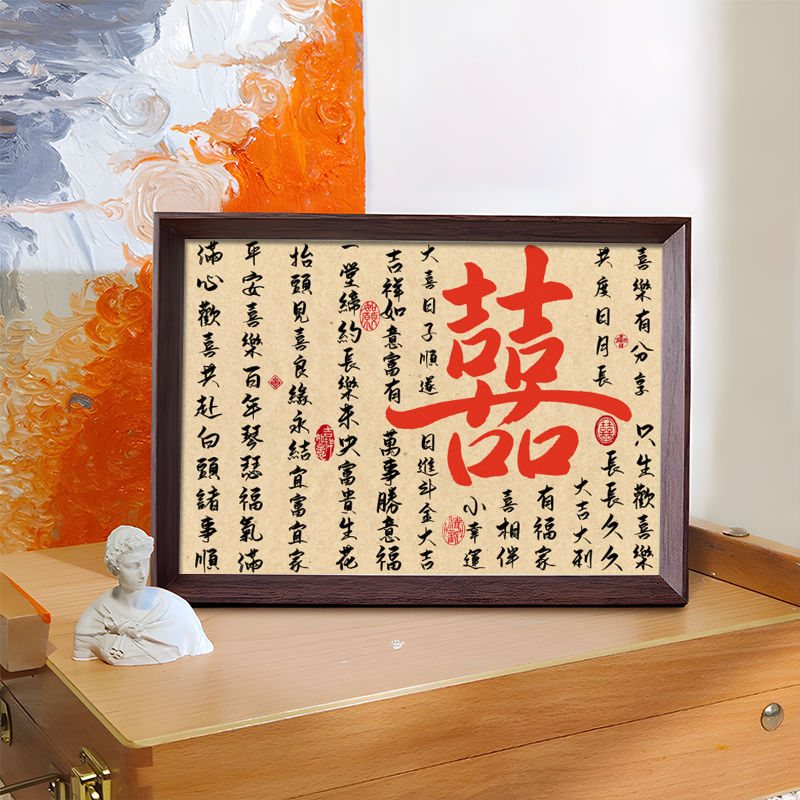 喜樂有分享 只生歡喜樂
共度日月長 長長久久
大吉大利
有福家
喜相伴
小幸運
囍
大喜日子順遂 日進斗金大吉
吉祥如意富有 萬事勝意福
一堂締約長樂未央富貴生花
抬頭見喜良緣永結宜富宜家
平安喜樂百年琴瑟福氣滿
滿心歡喜共赴白頭諸事順